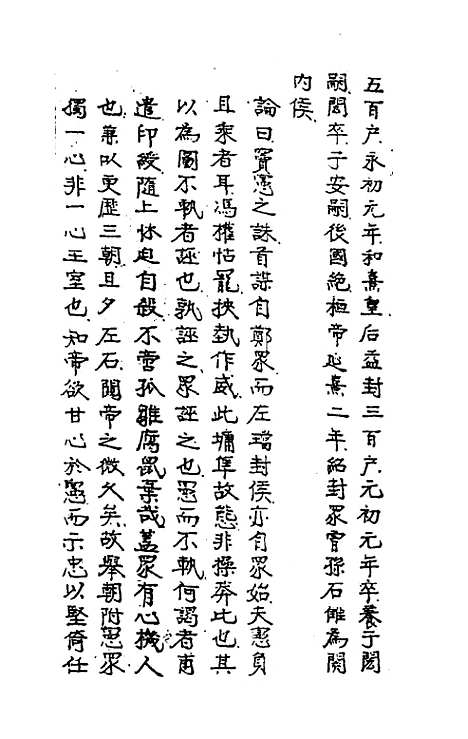 五百户永初元年和熹皇后益封三百户元初元年卒養子閎
嗣閎卒子安嗣後國絶桓帝延熹二年紹封眾曽孫石讎為関
内侯
論曰竇憲之誅首謀自鄭眾而左璫封侯亦自眾始夫憲負
且乘者耳馮權怙寵挾執作威此墉隼故態非操莽比也其
以為圖不軌者誣也孰誣之眾誣之也憲而不軌何謁者甫
遣印綬隨上怵迫自殺不啻孤雛腐鼠棄哉蓋眾有心機人
也兼以更歷三朝且夕左右闚帝之微久矣故舉朝附憲眾
獨一心非一心王室也知帝欲甘心於憲而示忠以堅倚任